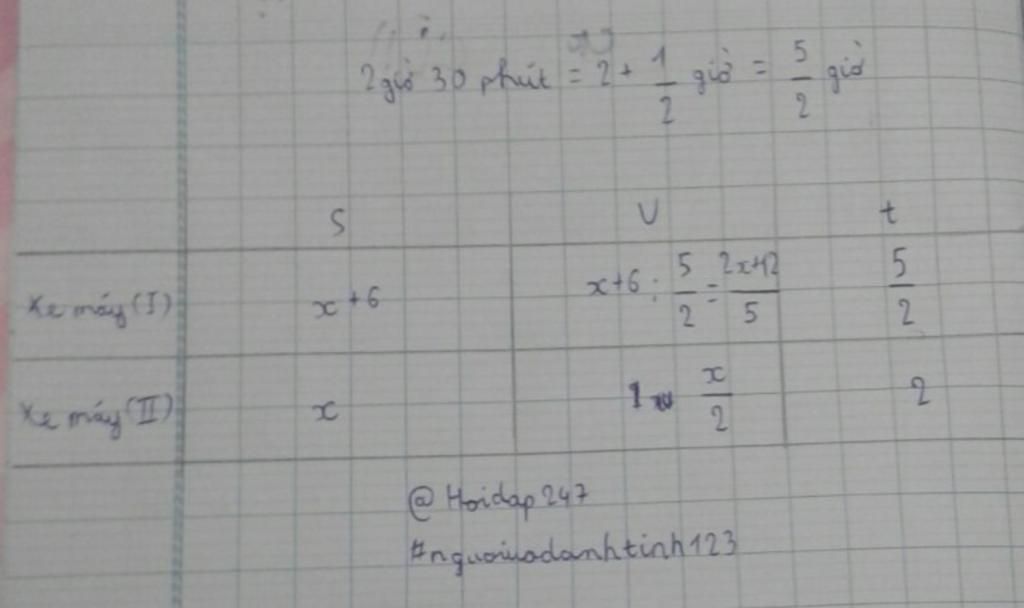 2 giờ 30 phút = 2 + 1/2 giờ = 5/2 giờ
S V t
Xe máy (I) x + 6 x+6 : 5/2 = 2x+12/5 5/2
Xe máy (II) x x/2 2
@Hoidap247
#nguoivodanhtinh123